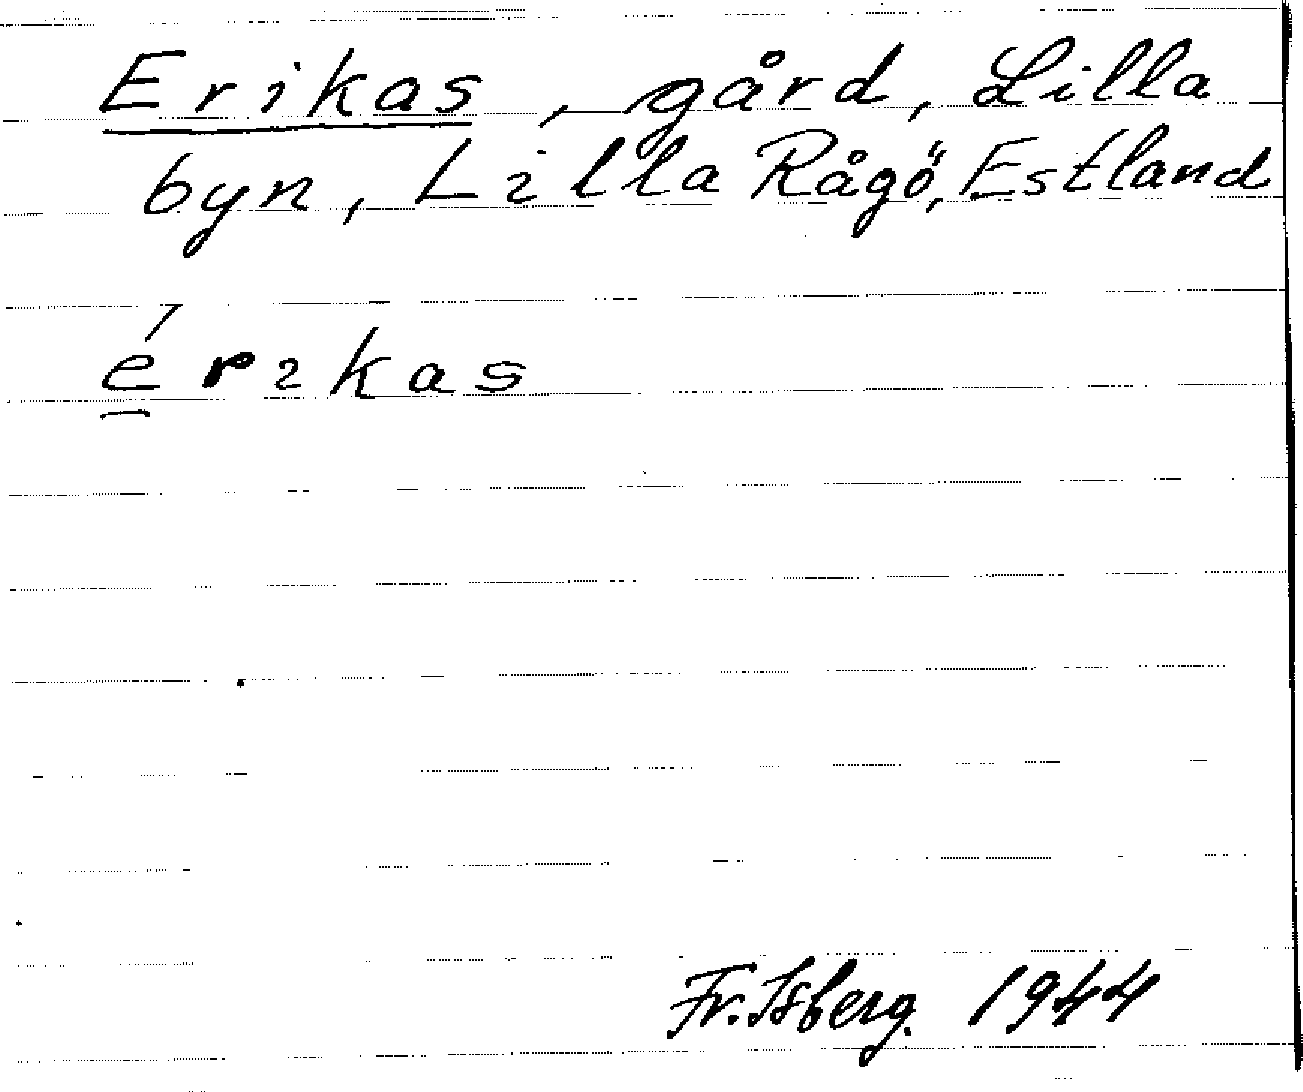 Erikas, gård, Lilla
byn, Lilla Rågö, Estland
érikas
Fr. Isberg. 1944